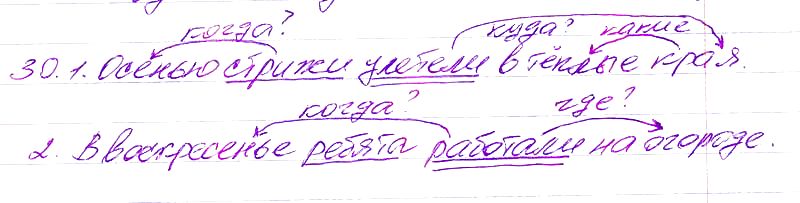 когда? куда? какие
30. 1. Осенью стрижи улетели в тёплые края.
когда? где?
2. В воскресенье ребята работали на огороде.